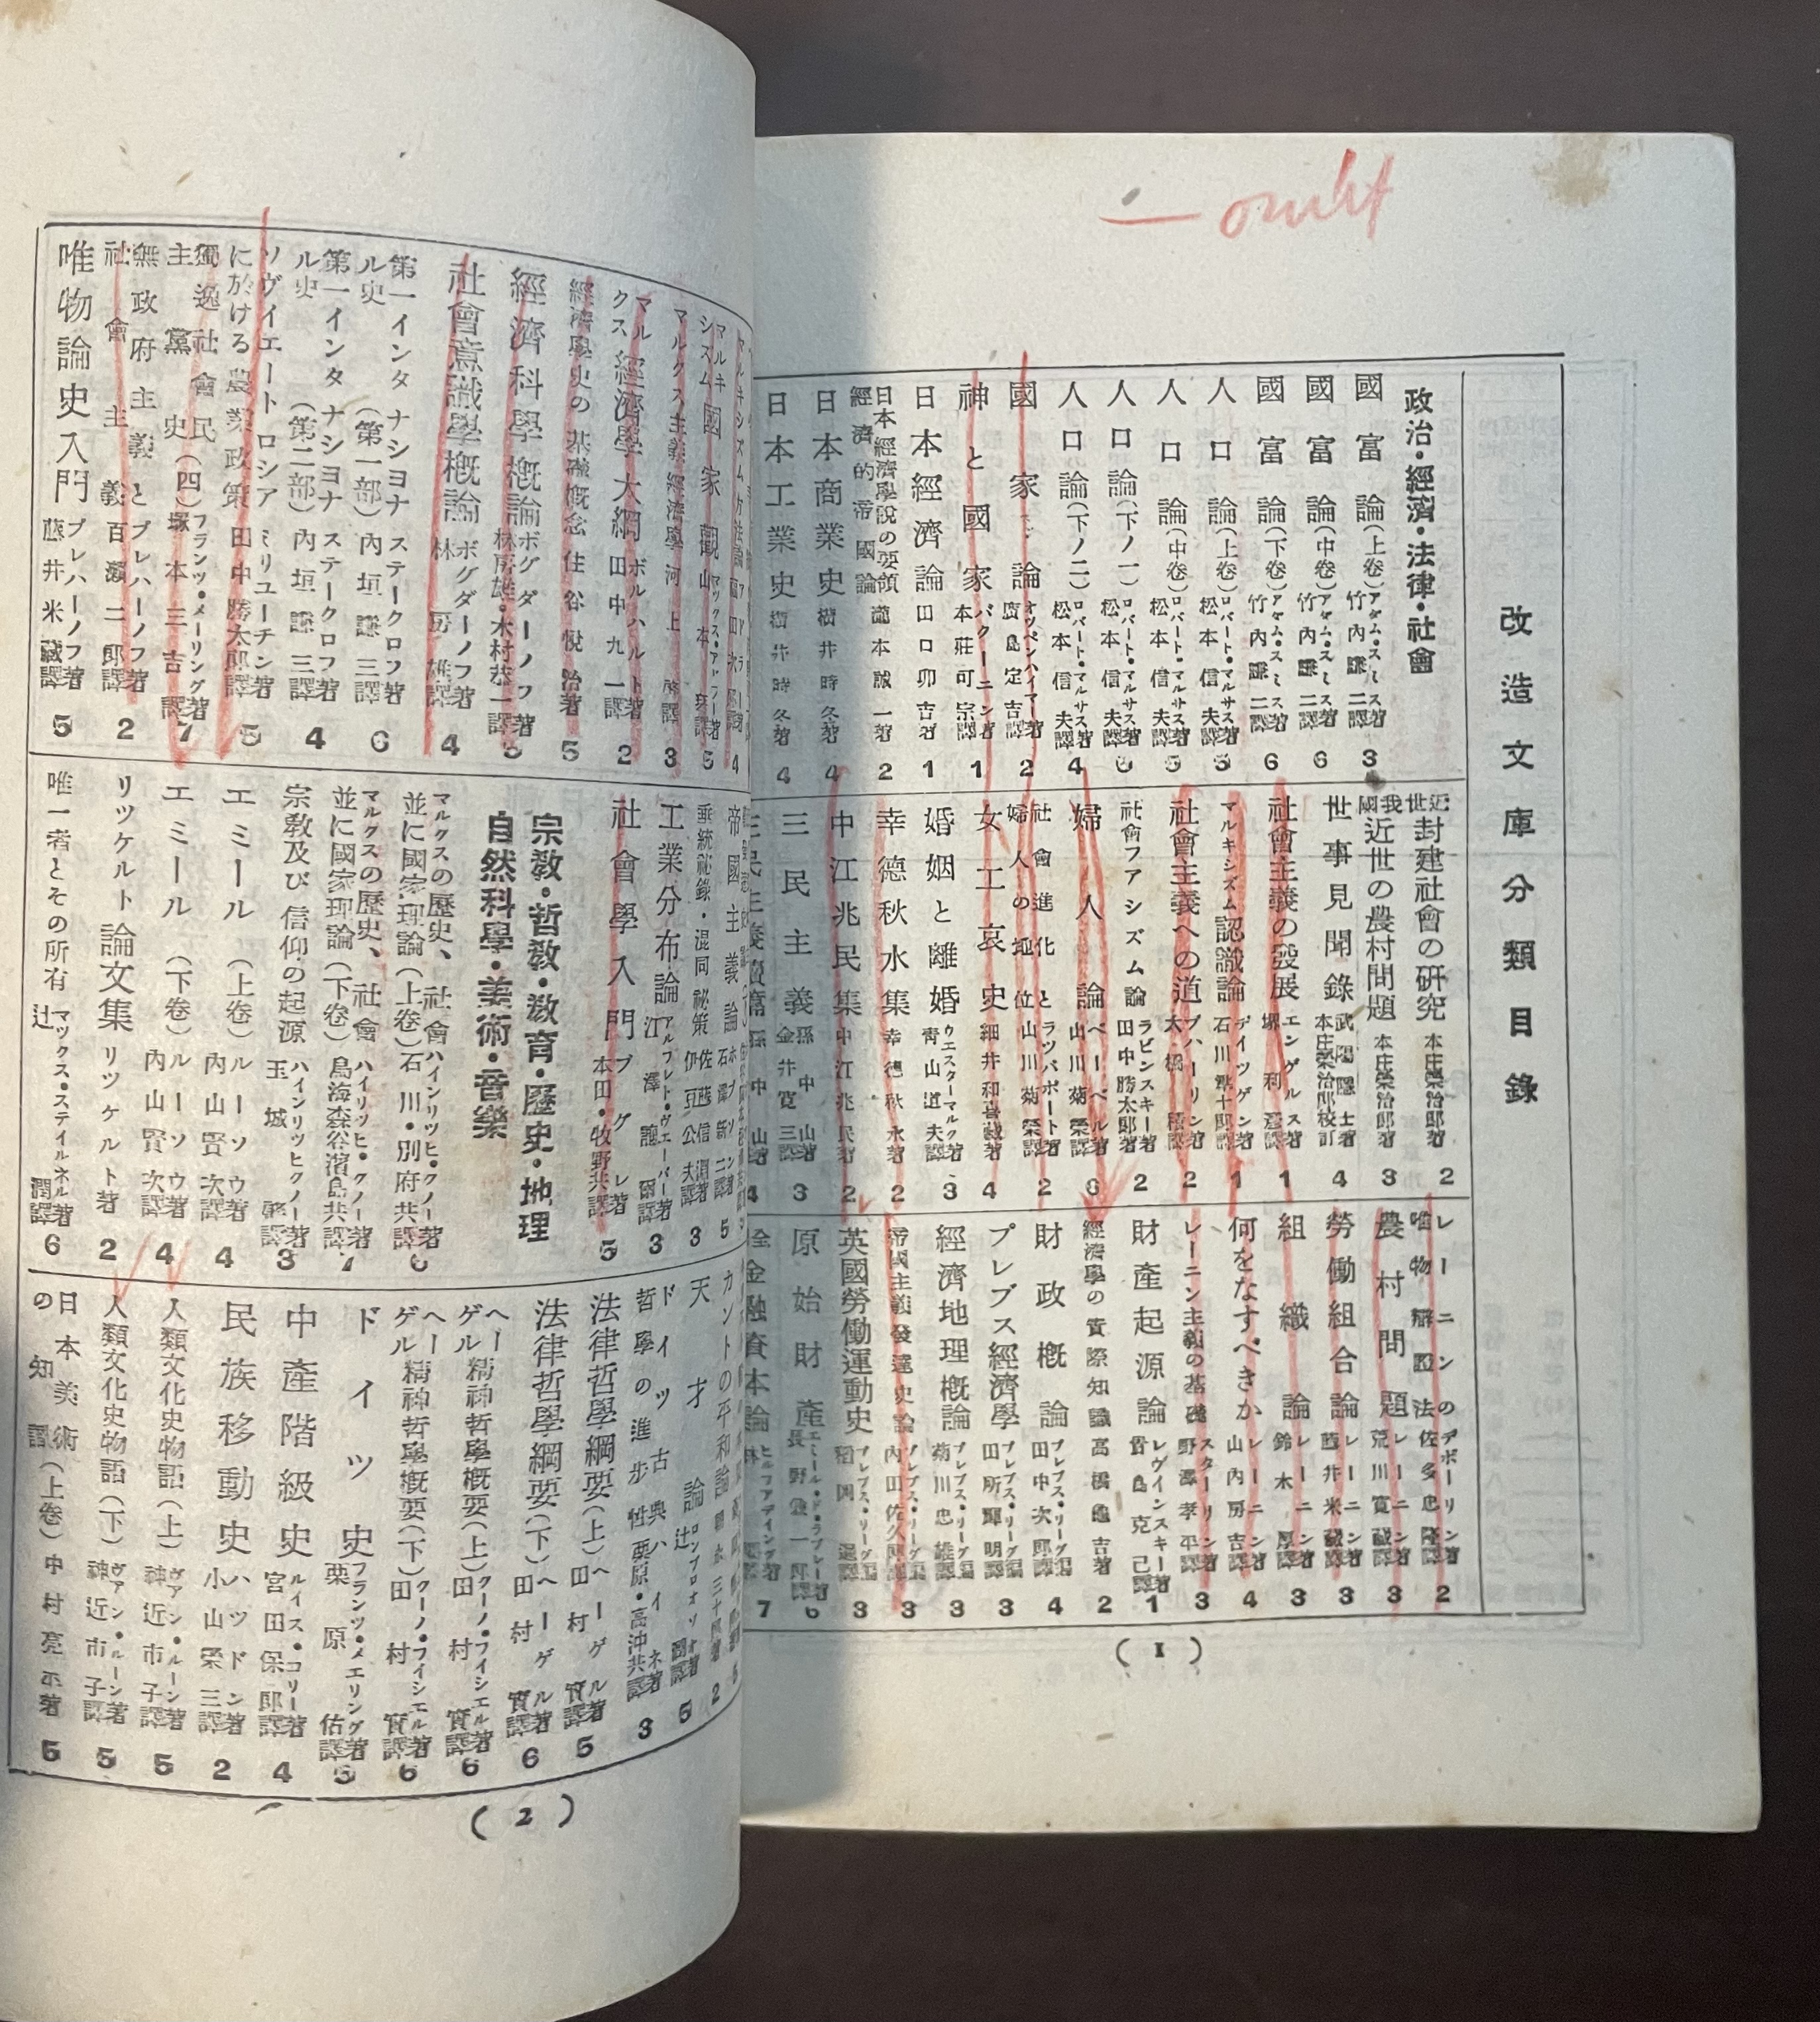 — omit
改造文庫分類目錄
政治・經濟・法律・社會
國富論(上卷) アダム・スミス著 竹內謙二譯 3
國富論(中卷) アダム・スミス著 竹內謙二譯 6
國富論(下卷) アダム・スミス著 竹內謙二譯 6
人口論(上卷) ロバート・マルサス著 松本信夫譯 5
人口論(中卷) ロバート・マルサス著 松本信夫譯 5
人口論(下ノ一) ロバート・マルサス著 松本信夫譯
人口論(下ノ二) ロバート・マルサス著 松本信夫譯 4
國家論 オッペンハイマー著 廣島定吉譯 2
神と國家 バクーニン著 本莊可宗譯 1
日本經濟論 田口卯吉著 1
日本經濟學說の要領 瀧本誠一著 2
經濟的帝國論
日本商業史 橫井時冬著 4
日本工業史 橫井時冬著 4
近世封建社會の研究 本庄榮治郎著 2
我國近世の農村問題 本庄榮治郎著 3
世事見聞錄 武陽隱士著 本庄榮治郎校訂 4
社會主義の發展 エンゲルス著 堺利彥譯 1
マルキシズム認識論 デイツゲン著 石川準十郎譯 1
社會主義への道 ブハーリン著 大橋積譯 2
社會フアシズム論 ラビンスキー著 田中勝太郎譯 2
婦人論 ベーベル著 山川菊榮譯 6
社會進化と婦人の地位 ラツパポート著 山川菊榮譯 2
女工哀史 細井和喜藏著 4
婚姻と離婚 ウエスターマルク著 靑山道夫譯 3
幸德秋水集 幸德秋水著 2
中江兆民集 中江兆民著 2
三民主義 孫中山著 金井寬三譯 3
三民主義續篇 孫中山著 4
レーニンの唯物辯證法 デボーリン著 佐多忠隆譯 2
農村問題 レーニン著 荒川實藏譯 3
勞働組合論 レーニン著 藤井米藏譯 3
組織論 レーニン著 鈴木厚譯 3
何をなすべきか レーニン著 山內房吉譯 4
レーニン主義の基礎 スターリン著 野澤孝平譯 3
財產起源論 レヴインスキー著 貴島克己譯 1
經濟學の實際知識 高橋龜吉著 2
財政槪論 プレブス・リーグ編 田中次郎譯 4
プレブス經濟學 プレブス・リーグ編 田所輝明譯 3
經濟地理槪論 プレブス・リーグ編 菊川忠雄譯 3
帝國主義發達史論 プレブス・リーグ編 內田佐久郎譯 3
英國勞働運動史 プレブス・リーグ編 稻岡暹譯 3
原始財產 エミール・ド・ラブレー著 長野敏一譯 6
金融資本論 ヒルフアデイング著 林要譯 7
(1)
マルキシズム國家觀 マツクス・アドラー著 山本琴譯 5
マルクス主義經濟學 河上肇譯 3
マルクス經濟學大綱 ボルハルト著 田中九一譯 2
經濟學史の基礎槪念 住谷悅治著 5
經濟科學槪論 ボグダーノフ著 林房雄・木村恭一譯 5
社會意識學槪論 ボグダーノフ著 林房雄譯 4
第一インタナシヨナル史(第一部) ステークロフ著 內垣謙三譯 6
第一インタナシヨナル史(第二部) ステークロフ著 內垣謙三譯 4
ソヴイエートロシアに於ける農業政策 ミリユーチン著 田中勝太郎譯 5
獨逸社會民主黨史(四) フランツ・メーリング著 塚本三吉譯 7
無政府主義と社會主義 プレハーノフ著 百瀨二郎譯 2
唯物論史入門 プレハーノフ著 藤井米藏譯 5
帝國主義論 ホブソン著 石澤新二譯 5
垂統祕錄・混同祕策 佐藤信淵著 伊豆公夫譯 3
工業分布論 アルフレト・ヴエーバー著 江澤讓爾譯 3
社會學入門 ブグレ著 本田・牧野共譯 5
宗敎・哲敎・敎育・歷史・地理
自然科學・美術・音樂
マルクスの歷史、社會並に國家理論(上卷) ハインリツヒ・クノー著 石川・別府共譯 6
マルクスの歷史、社會並に國家理論(下卷) ハイリツヒ・クノー著 鳥海森谷濱島共譯 7
宗敎及び信仰の起源 ハインリツヒクノー著 玉城肇譯 3
エミール(上卷) ルーソウ著 內山賢次譯 4
エミール(下卷) ルーソウ著 內山賢次譯 4
リツケルト論文集 リツケルト著 2
唯一者とその所有 マツクス・ステイルネル著 辻潤譯 6
カントの平和論 2
天才論 ロンブロオゾオ著 辻潤譯 5
ドイツ古典哲學の進步性 ハイネ著 栗原・高沖共譯 3
法律哲學綱要(上) ヘーゲル著 田村實譯 5
法律哲學綱要(下) ヘーゲル著 田村實譯 6
ヘーゲル精神哲學槪要(上) クーノ・フイシエル著 田村實譯 6
ヘーゲル精神哲學槪要(下) クーノ・フイシエル著 田村實譯 6
ドイツ史 フランツ・メエリング著 栗原佑譯 5
中產階級史 ルイス・コリー著 宮田保郎譯 4
民族移動史 ハツドン著 小山榮三譯 2
人類文化史物語(上) ヴアン・ルーン著 神近市子譯 5
人類文化史物語(下) ヴアン・ルーン著 神近市子譯 5
日本美術の知識(上卷) 中村亮平著 5
(2)